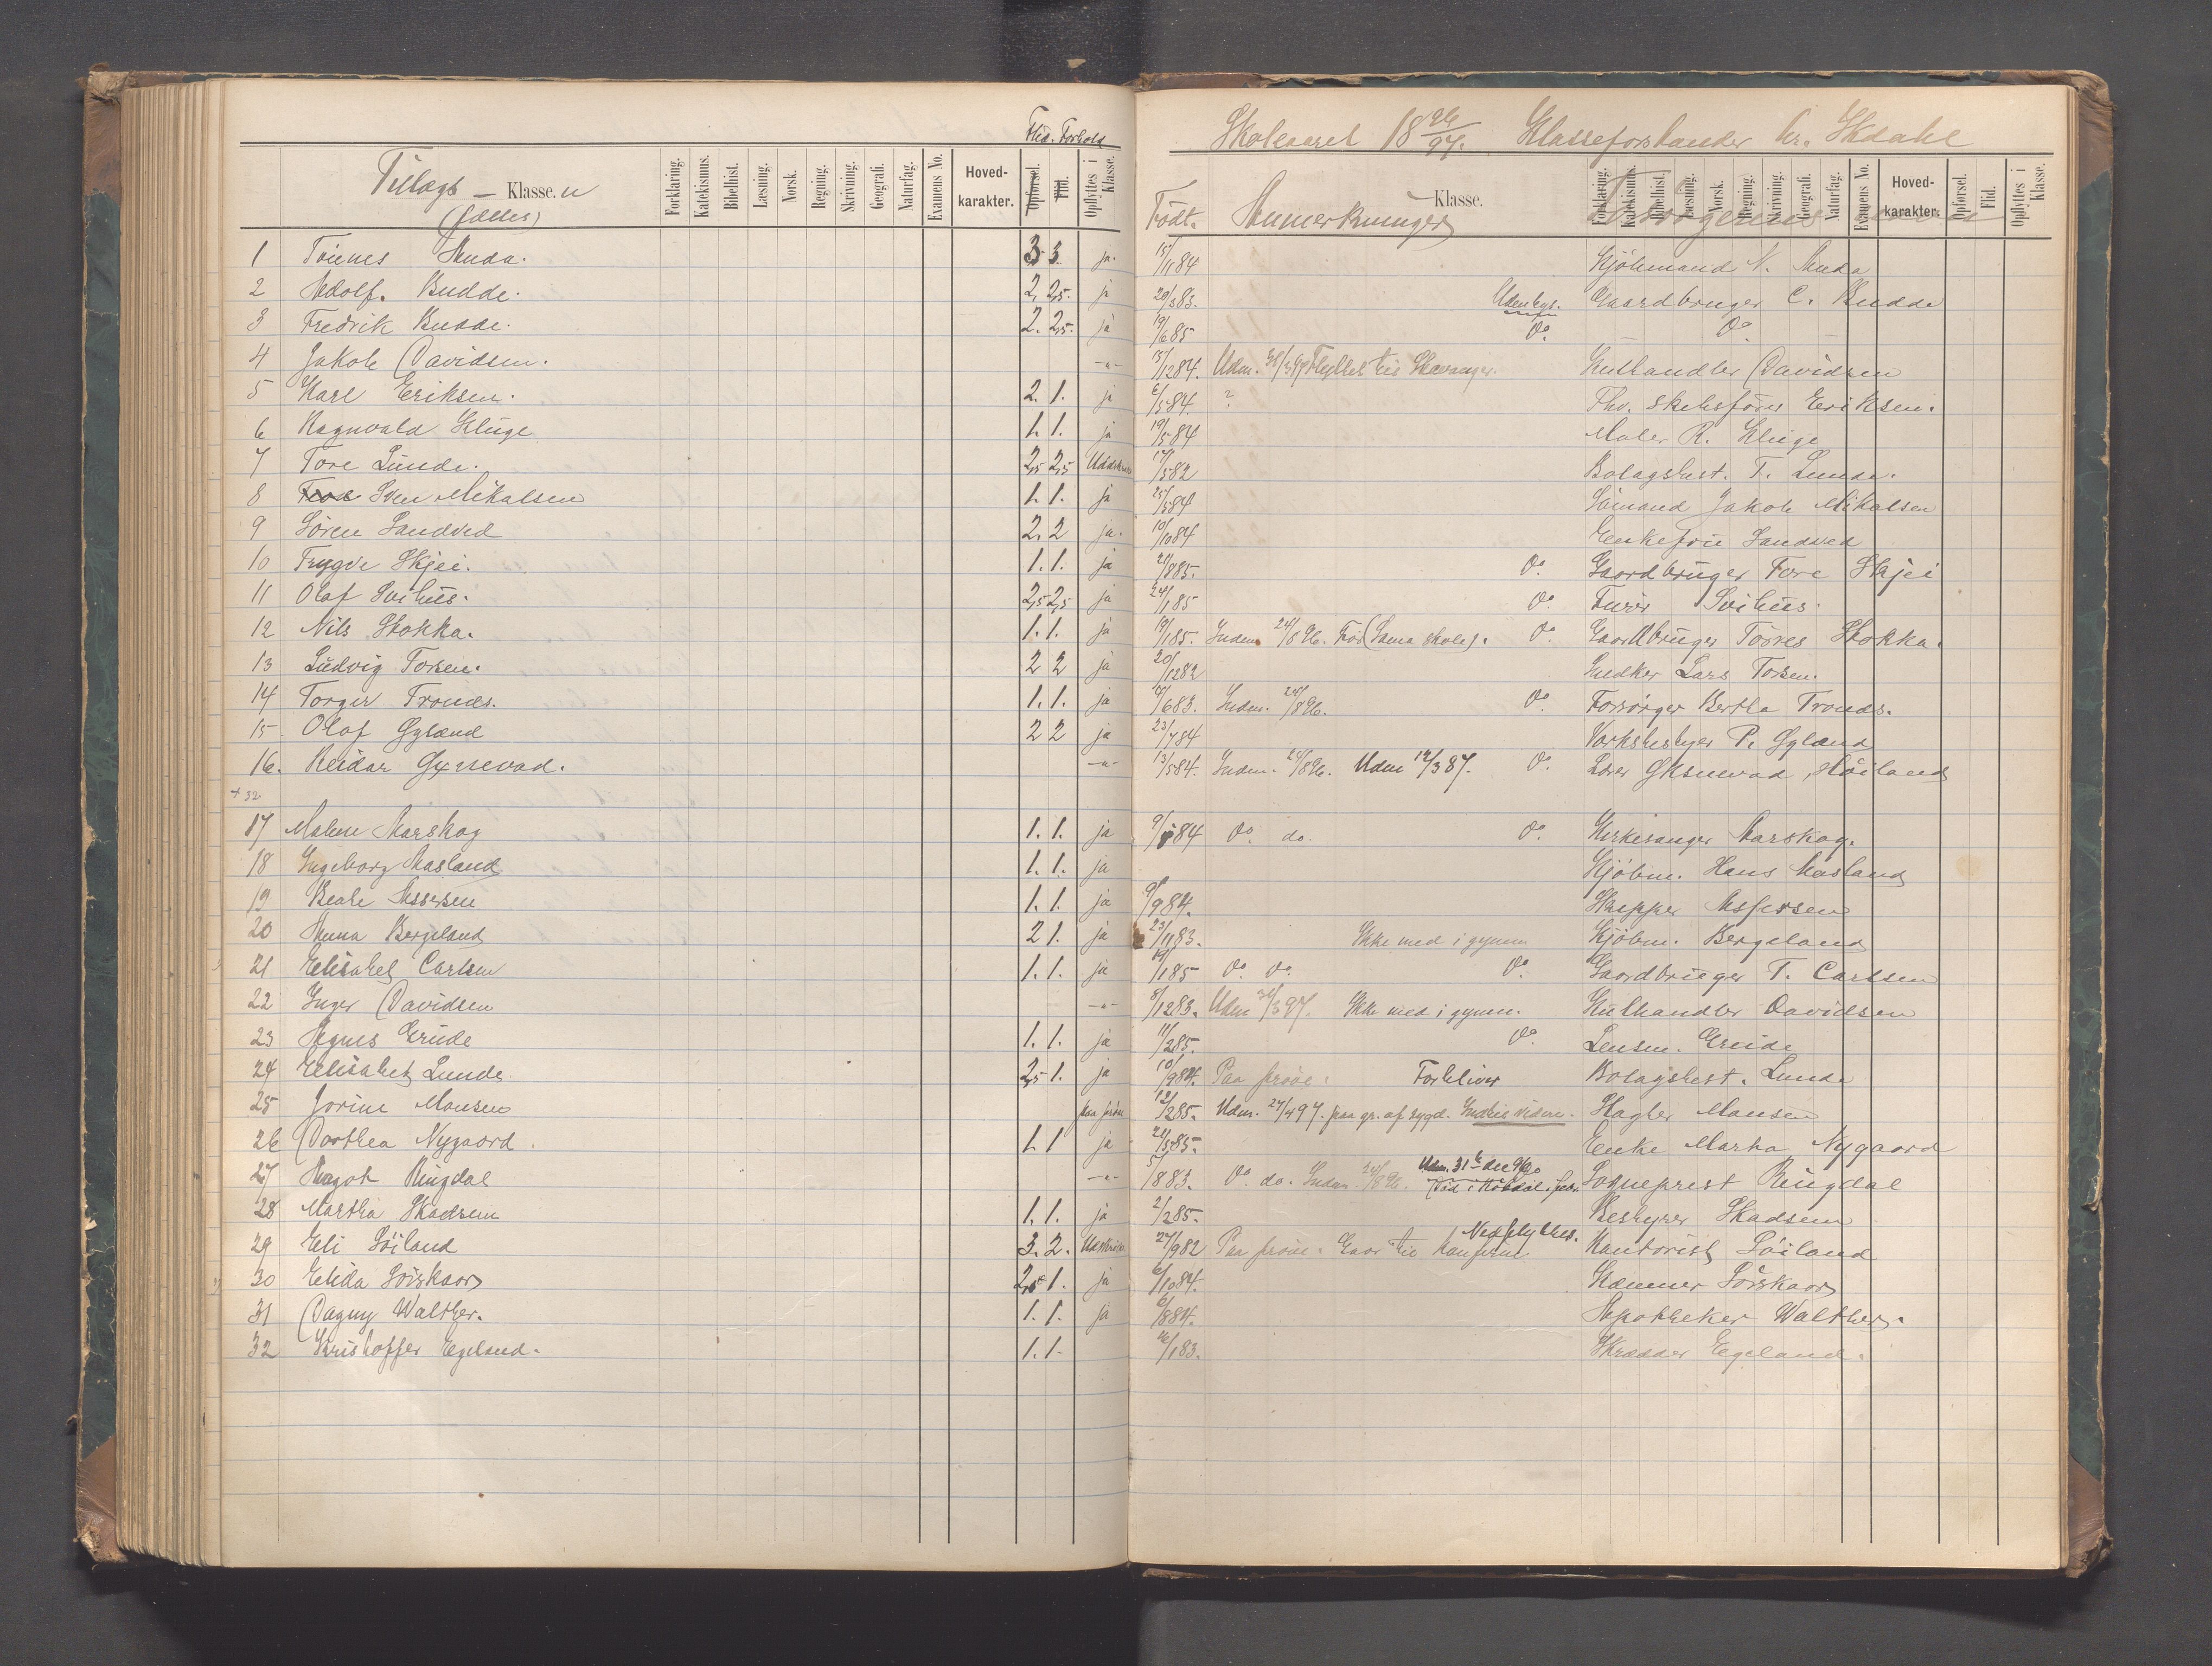 Flid. Forhold
Tillægs – Klasse.n
(fælles)
Forklaring. Katekismus. Bibelhist. Læsning. Norsk. Regning. Skrivning. Geografi. Naturfag. Examens No. Hoved-karakter. Opførsel. Flid. Opflyttes i Klasse.
1 Tönnes Auda. 3 3 ja.
2 Adolf. Budde. 2, 2,5. ja
3 Fredrik Budde. 2. 2,5. ja
4 Jakob Davidsen. -"-
5 Karl Eriksen. 2. 1. ja
6 Ragnvald Kluge 1. 1. ja
7 Tore Lunde. 2,5 2,5 Udskreven
8 Sven Mikalsen 1. 1. ja
9 Sören Sandved 2. 2 ja.
10 Trygve Skjei. 1. 1. ja
11 Olaf Svihus. 2,5 2,5 ja
12 Nils Stokka. 1. 1. ja
13 Ludvig Torsen. 2 2 ja
14 Torger Tronds. 1. 1. ja
15. Olaf Gyland 2 2 ja
16. Reidar Gxnevad. -"-
+ 32
17 Malene Aarskog 1. 1. ja
18 Ingeborg Aasland 1. 1. ja
19 Beate Assersen 1. 1. ja
20 Anna Bergeland 2 1. ja
21 Elisabet Carlsen 1. 1. ja
22 Inger Davidsen -"-
23 Agnes Grude 1. 1. ja
24 Elisabet Lunde 2,5 1. ja
25 Jorine Monsen paa pröve
26 Dorthea Nygaard. 1. 1 ja
27 Aagot Ringdal -"-
28 Martha Skadsem 1. 1. ja
29 Eli Söiland 3. 2. Udskreven
30 Elida Sörskaar 2,5 1. ja
31 Dagny Walther. 1. 1. ja
32 Kristoffer Egeland. 1. 1.
Skoleaaret 18 96/97. Klasseforstander hr. Skdahl
Födt. Anmerkninger Klasse. Forsörgernes navn
Forklaring. Katekismus. Bibelhist. Læsning. Norsk. Regning. Skrivning. Geografi. Naturfag. Examens No. Hoved-karakter. Opførsel. Flid. Opflyttes i Klasse.
15/11 84 Kjöbmand N. Auda
20/3 83. Udenbys. Gaardbruger C. Budde
19/6 85 Do. Do
15/12 84. Udm. Flyttet til Stavanger. Kulhandler Davidsen
6/5 84. ? Fhv. skibsförer Eriksen.
19/5 84 Maler R. Kluge
17/5 82 Bolagsbest. T. Lunde.
25/5 84 Sömand Jakob Mikalsen
10/10 84 Enkefru Sandved
21/8 85. Do. Gaardbruger Tore Skjei
24/1 85 Do. Furer Svihus.
19/1 85. Indm. 24/8 96. Før (Lama skole). Do. Gaardbruger Torres Stokka.
20/12 82 Snedker Lars Torsen.
6/6 83. Indm. 24/8 96. Do. Forsörger Bertha Tronds.
23/7 84 Værksbestyrer P. Gyland
13/5 84. Indm. 24/8 96. Udm 12/3 87. Do. Lærer Gksnevad, Höiland
9/5 84 Do. do. Do. Kirkesanger Aarskog.
Kjöbm. Hans Aasland
9/9 84. Skipper Assersen
23/11 83. Ikke med i gymn. Kjöbm. Bergeland
19/1 85 Do. Do. Do. Gaardbruger T. Carlsen
8/12 83. Udm 31/3 97. Ikke med i gymn. Kulhandler Davidsen
11/2 85. Do. Lensm. Grude
10/9 84. Paa pröve. Forbliver Bolagsbest. Lunde
12/2 85. Udm. 24/4 97. paa gr. af sygd. Indtil videre. Hagler Monsen
22/5 85. Enke Marta Nygaard
5/8 83. Do. do. Indm. 24/8 96. Udm. 31te dec 96 Sogneprest Ringdal
2/2 85. Bestyrer Skadsem
27/9 82 Paa pröve. Gaar til konfirm. Nedflyttes. Kontorist Söiland
6/10 84. Kæmner Sörskaar
6/8 84. Apotheker Walther.
16/1 83. Skrædder Egeland.